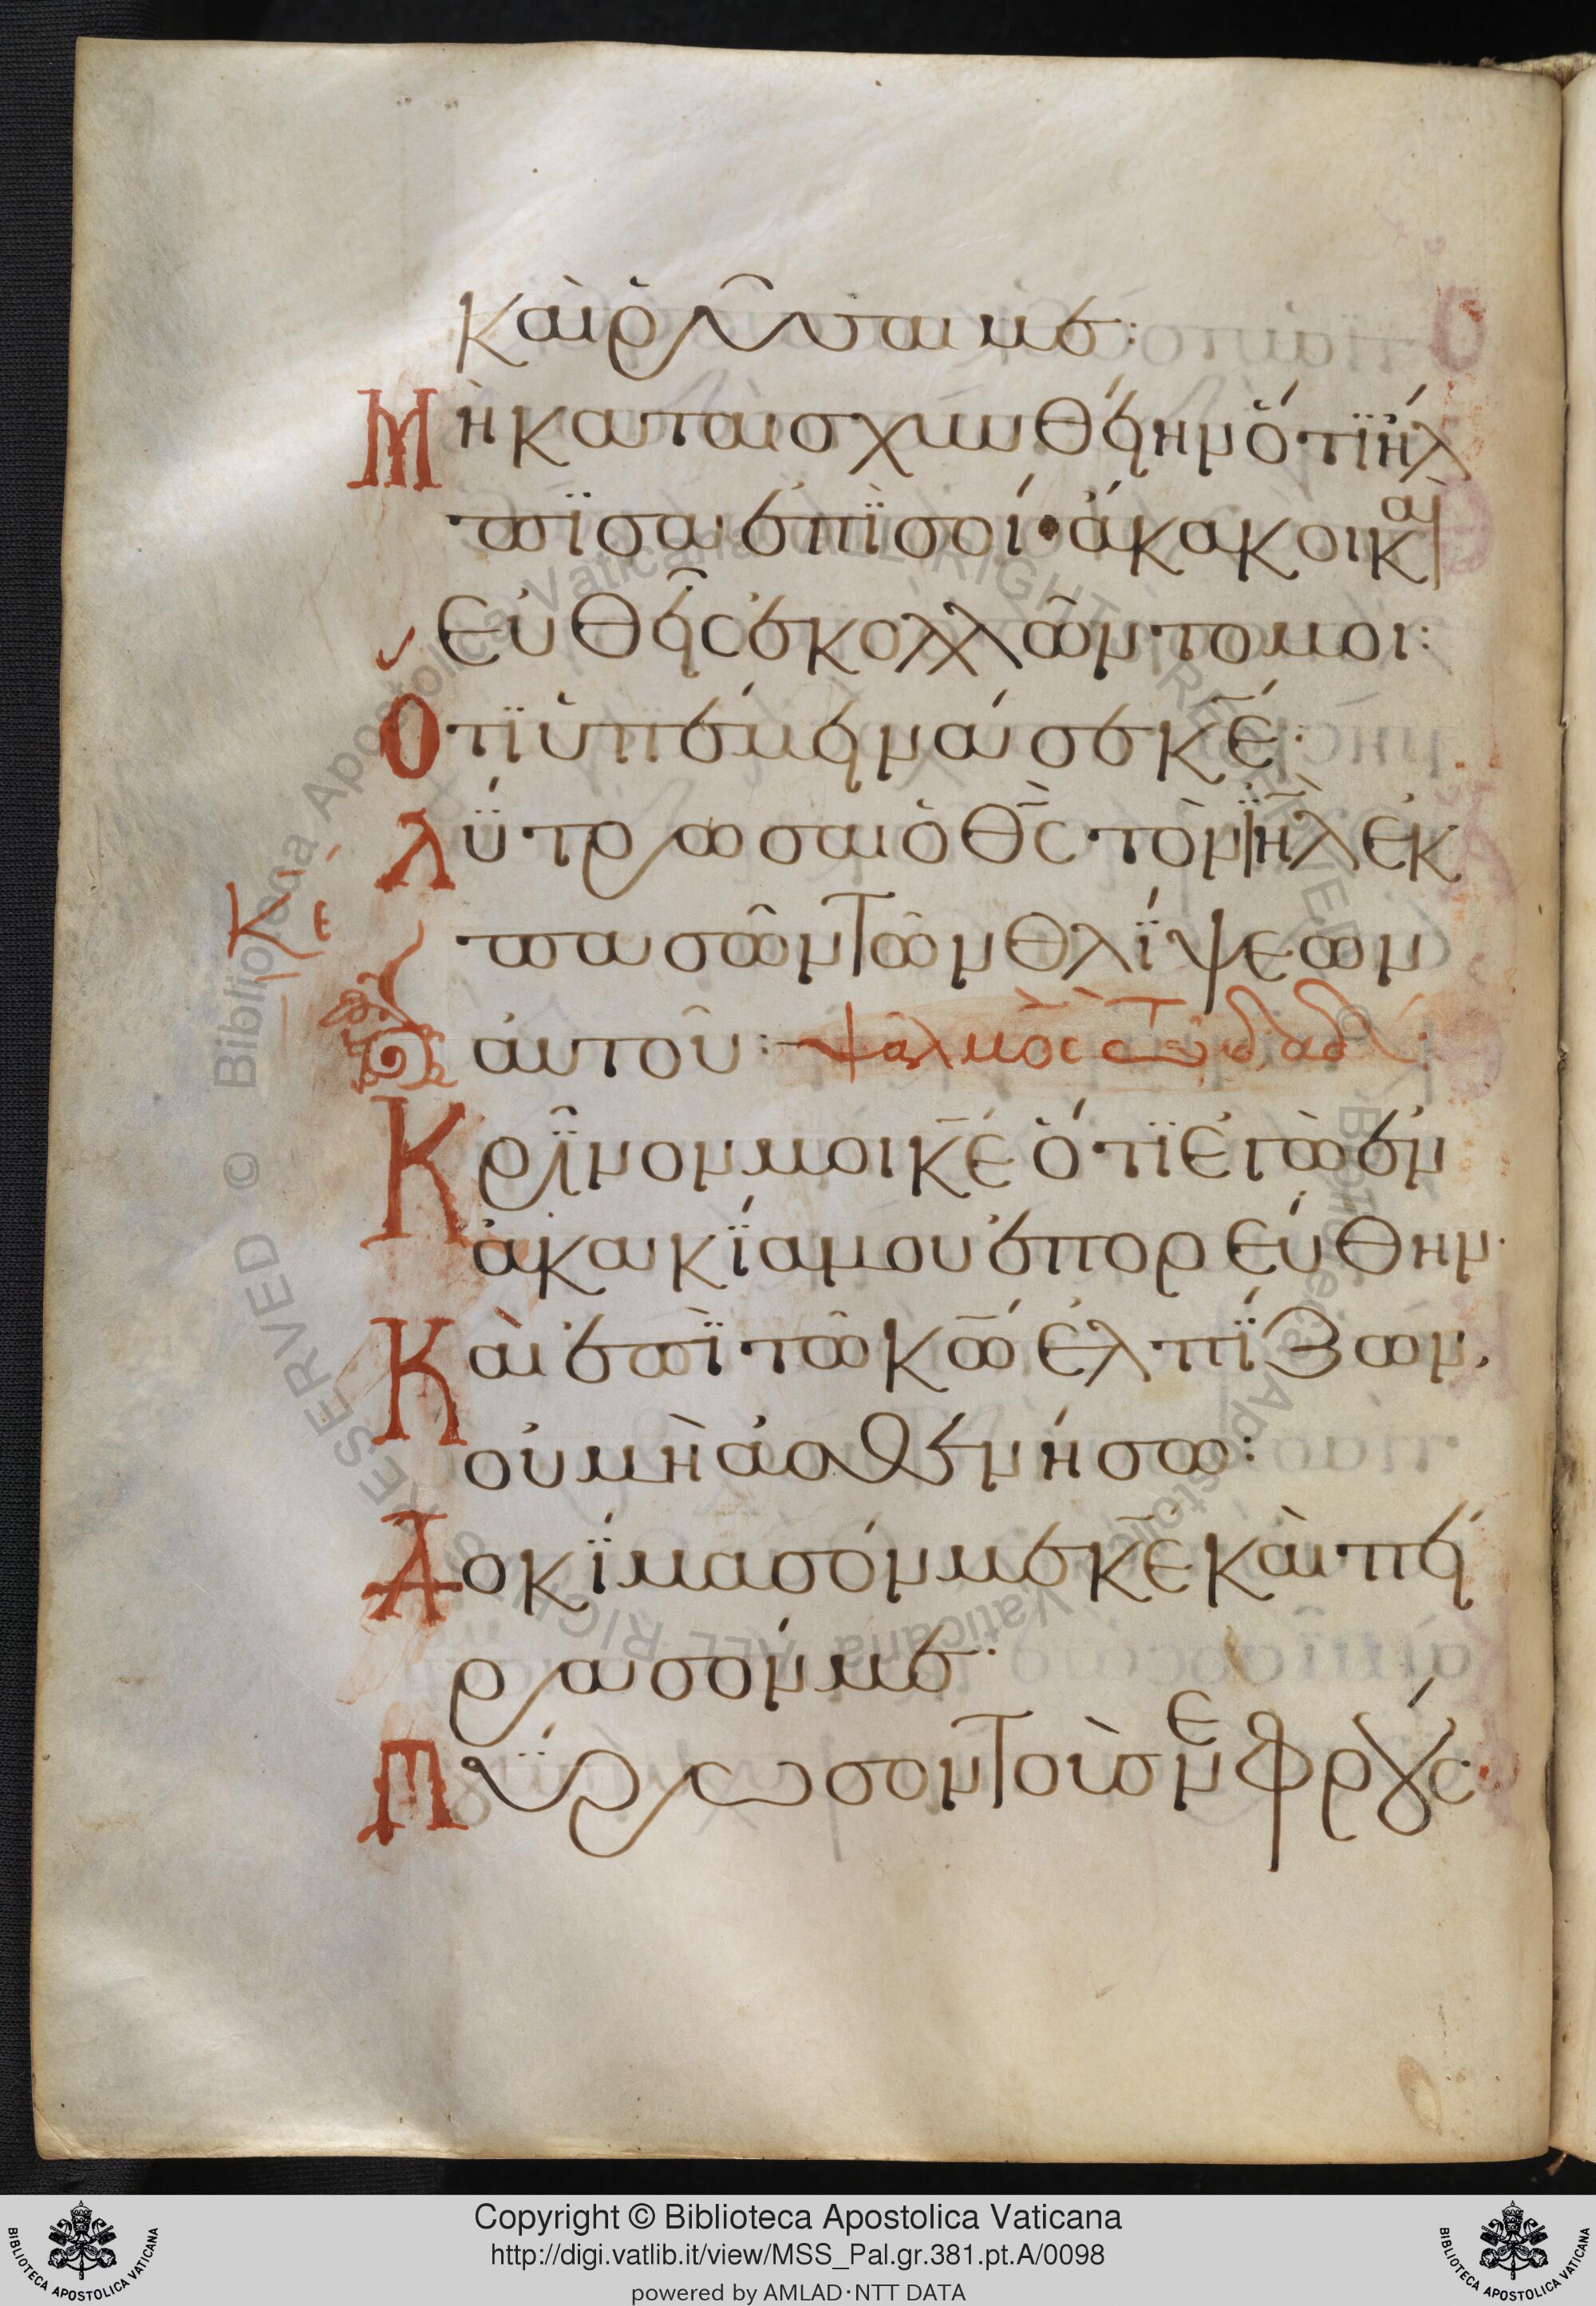 καὶ ῥῦσαι με:
Μὴ καταισχυνθείην ὅτϊ ἤλ
πϊσα ἐπϊ σοί· ἄκακοι καὶ
εὐθεῖς ἐκολλῶντο μοι:
Οτϊ ὑπέμεινά σε κ̅έ:
Λύτρωσαι ὁ θ̅ς τὸν ϊ̅η̅λ ἐκ
πασῶν τῶν θλίψεων
κε
αὐτοῦ: ψαλμὸς τῶ δα̅δ:
Κρῖνον μοι κ̅έ ὅτϊ ἐγὼ ἐν
ἀκακΐα μου ἐπορεύθην·
Καὶ ἐπὶ τῶ κ̅ω ἐλπΐζων,
οὐ μὴ ἀσθενήσω:
Δοκΐμασόν με κ̅ε καὶ πεί
ρασόν με·
Πύρωσον τοὺς νεφρούς
Copyright © Biblioteca Apostolica Vaticana
http://digi.vatlib.it/view/MSS_Pal.gr.381.pt.A/0098
powered by AMLAD·NTT DATA
BIBLIOTECA APOSTOLICA VATICANA
BIBLIOTECA APOSTOLICA VATICANA